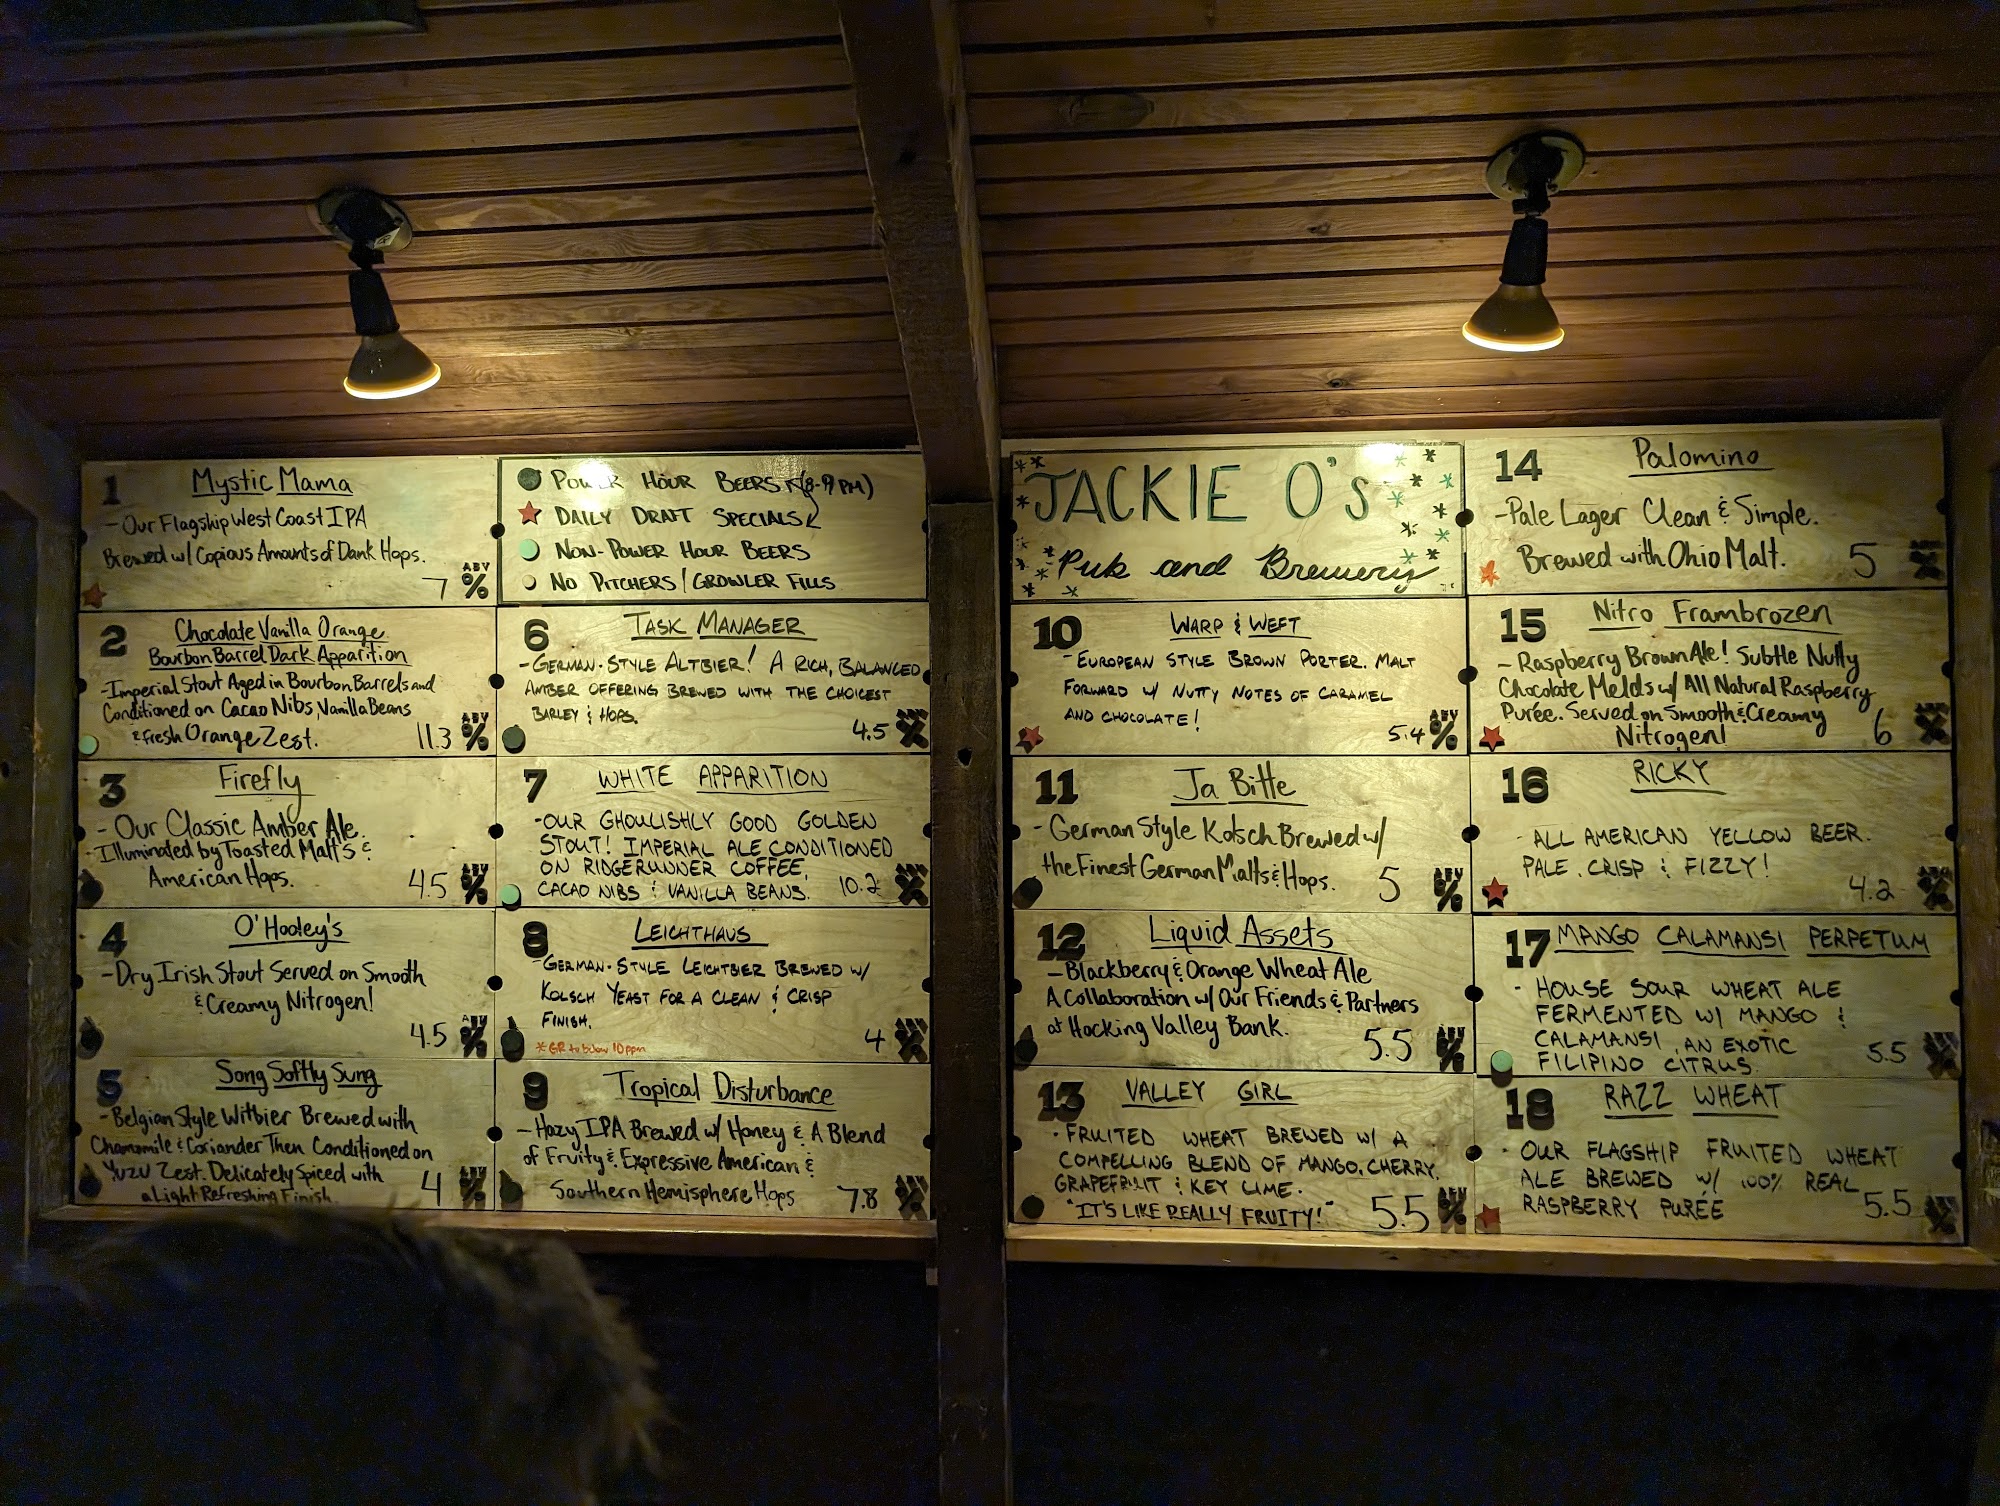 1 Mystic Mama
- Our Flagship West Coast IPA
Brewed w/ Copious Amounts of Dank Hops.
7 ABV %
2 Chocolate Vanilla Orange
Bourbon Barrel Dark Apparition
- Imperial Stout Aged in Bourbon Barrels and
Conditioned on Cacao Nibs, Vanilla Beans
& Fresh Orange Zest. 11.3 ABV %
3 Firefly
- Our Classic Amber Ale.
Illuminated by Toasted Malts &
American Hops. 4.5 ABV %
4 O'Hooley's
- Dry Irish Stout Served on Smooth
& Creamy Nitrogen!
4.5 ABV %
5 Song Softly Sung
- Belgian Style Witbier Brewed with
Chamomile & Coriander Then Conditioned on
Yuzu Zest. Delicately Spiced with
a Light Refreshing Finish. 4 ABV %
POWER HOUR BEERS (8-9 PM)
DAILY DRAFT SPECIALS
NON-POWER HOUR BEERS
NO PITCHERS/GROWLER FILLS
6 TASK MANAGER
- GERMAN-STYLE ALTBIER! A RICH, BALANCED
AMBER OFFERING BREWED WITH THE CHOICEST
BARLEY & HOPS. 4.5 ABV %
7 WHITE APPARITION
- OUR GHOULISHLY GOOD GOLDEN
STOUT! IMPERIAL ALE CONDITIONED
ON RIDGERUNNER COFFEE,
CACAO NIBS & VANILLA BEANS. 10.2 ABV %
8 LEICHTHAUS
- GERMAN-STYLE LEICHTBIER BREWED W/
KOLSCH YEAST FOR A CLEAN & CRISP
FINISH.
*GR to below 10ppm 4 ABV %
9 Tropical Disturbance
- Hazy IPA Brewed w/ Honey & A Blend
of Fruity & Expressive American &
Southern Hemisphere Hops 7.8 ABV %
JACKIE O'S
Pub and Brewery
10 WARP & WEFT
- EUROPEAN STYLE BROWN PORTER. MALT
FORWARD W/ NUTTY NOTES OF CARAMEL
AND CHOCOLATE! 5.4 ABV %
11 Ja Bitte
- German Style Kolsch Brewed w/
the Finest German Malts & Hops. 5 ABV %
12 Liquid Assets
- Blackberry & Orange Wheat Ale
A Collaboration w/ Our Friends & Partners
at Hocking Valley Bank. 5.5 ABV %
13 VALLEY GIRL
- FRUITED WHEAT BREWED W/ A
COMPELLING BLEND OF MANGO, CHERRY,
GRAPEFRUIT & KEY LIME.
"IT'S LIKE REALLY FRUITY!" 5.5 ABV %
14 Palomino
- Pale Lager Clean & Simple.
Brewed with Ohio Malt. 5 ABV %
15 Nitro Frambrozen
- Raspberry Brown Ale! Subtle Nutty
Chocolate Melds w/ All Natural Raspberry
Purée. Served on Smooth & Creamy
Nitrogen! 6 ABV %
16 RICKY
- ALL AMERICAN YELLOW BEER.
PALE, CRISP & FIZZY!
4.2 ABV %
17 MANGO CALAMANSI PERPETUM
- HOUSE SOUR WHEAT ALE
FERMENTED W/ MANGO &
CALAMANSI, AN EXOTIC
FILIPINO CITRUS. 5.5 ABV %
18 RAZZ WHEAT
- OUR FLAGSHIP FRUITED WHEAT
ALE BREWED W/ 100% REAL
RASPBERRY PURÉE 5.5 ABV %